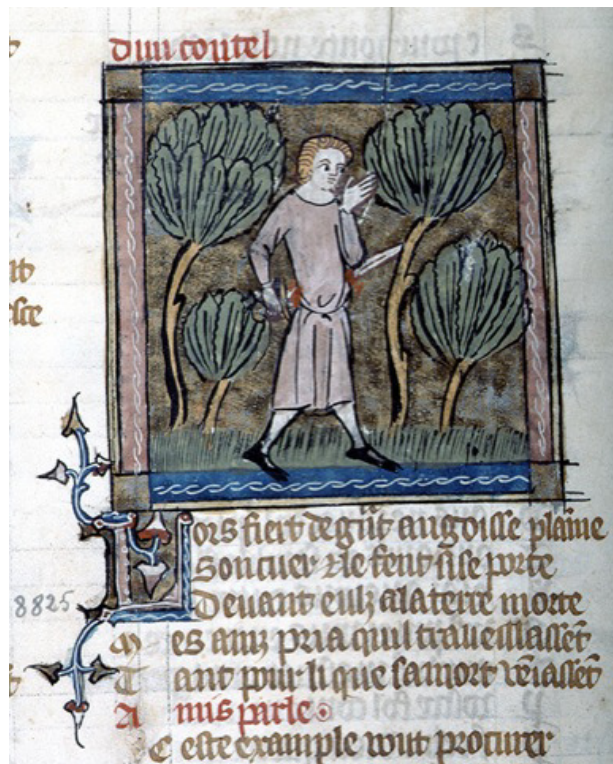 dun coutel
Lors fiert de gñt angoisse plaine
Son cuer ⁊ le fent si se porte
8825 Deuant eulz a la terre morte
Mes ainz pria quil traueillassẽt
Tant pour li que sa mort vẽiassẽt
Amis parle.
Ceste example vout procurer